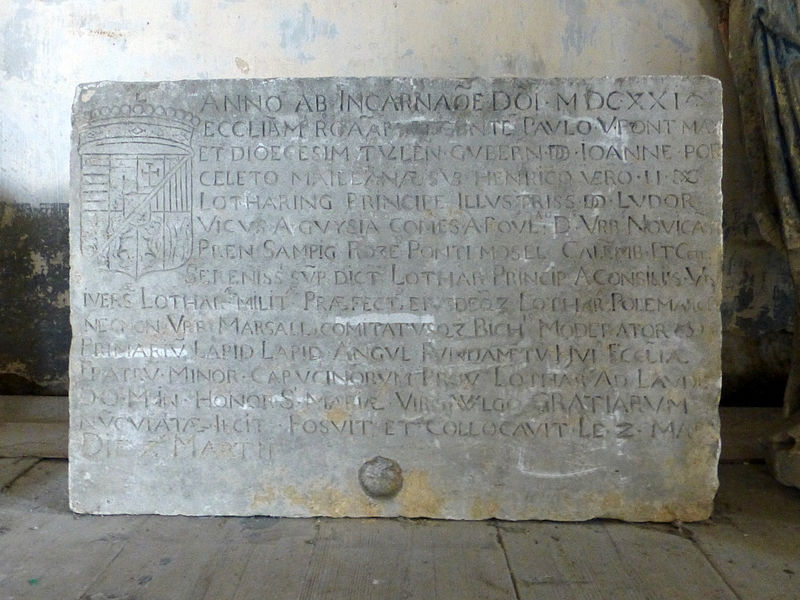 ANNO AB INCARNAŌE DŌI · MDCXXI
ECCLIAM PAULO · V · PONT MAX
ET DIOECESIM TULLEN · GUBERN · DD · IOANNE POR
CELETO MAILLANÆ SUB HENRICO VERO · II ·
LOTHARING PRINCIPE ILLUSTRISS · DD · LUDOR
VICUS · A GUYSIA COMES APOUL · D · URB NOVICA
PREN SAMPIG ROZE PONTI MOSEL CALEMB · ET
SERENISS · SUP DICT LOTHAR PRINCIP A CONSILIIS ·
IVERS LOTHAR MILIT PRÆFECT EIUSDEQZ LOTHAR POLEMARC
NECNON URB MARSALL COMITATUSQZ BICH MODERATOR
PRIMARIU LAPID LAPID ANGUL FUNDAMETU HUI ECCLIÆ
FRATRU MINOR · CAPUCINORUM PROV LOTHAR AD LAUDE
DO · M · IN HONOR S · MARIÆ VIRG VULGO GRATIARUM
NUCUPATÆ IECIT · POSUIT ET COLLOCAVIT LE · 2 · MA
DIE 2 MARTII